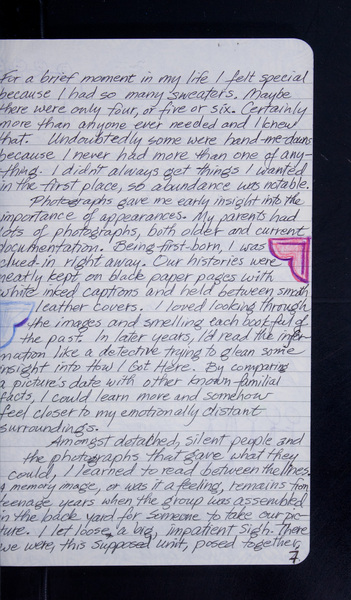 For a brief moment in my life I felt special
because I had so many sweaters. Maybe
there were only four, or five or six. Certainly
more than anyone ever needed and I knew
that. Undoubtedly some were hand-me-downs
because I never had more than one of any-
thing. I didn't always get things I wanted
in the first place, so abundance was notable.
Photographs gave me early insight into the
importance of appearances. My parents had
lots of photographs, both older and current
documentation. Being first-born, I was
clued in right away. Our histories were
neatly kept on black paper pages with
white inked captions and held between smooth
leather covers. I loved looking through
the images and smelling each book full of
the past. In later years, I'd read the infor-
mation like a detective trying to glean some
insight into How I Got Here. By comparing
a picture's date with other known familial
facts, I could learn more and somehow
feel closer to my emotionally distant
surroundings.
Amongst detached, silent people and
the photographs that gave what they
could, I learned to read between the lines.
A memory image, or was it a feeling, remains from
teenage years when the group was assembled
in the back yard for someone to take our pic-
ture. I let loose a big, impatient sigh. There
we were, this supposed unit, posed together,
7